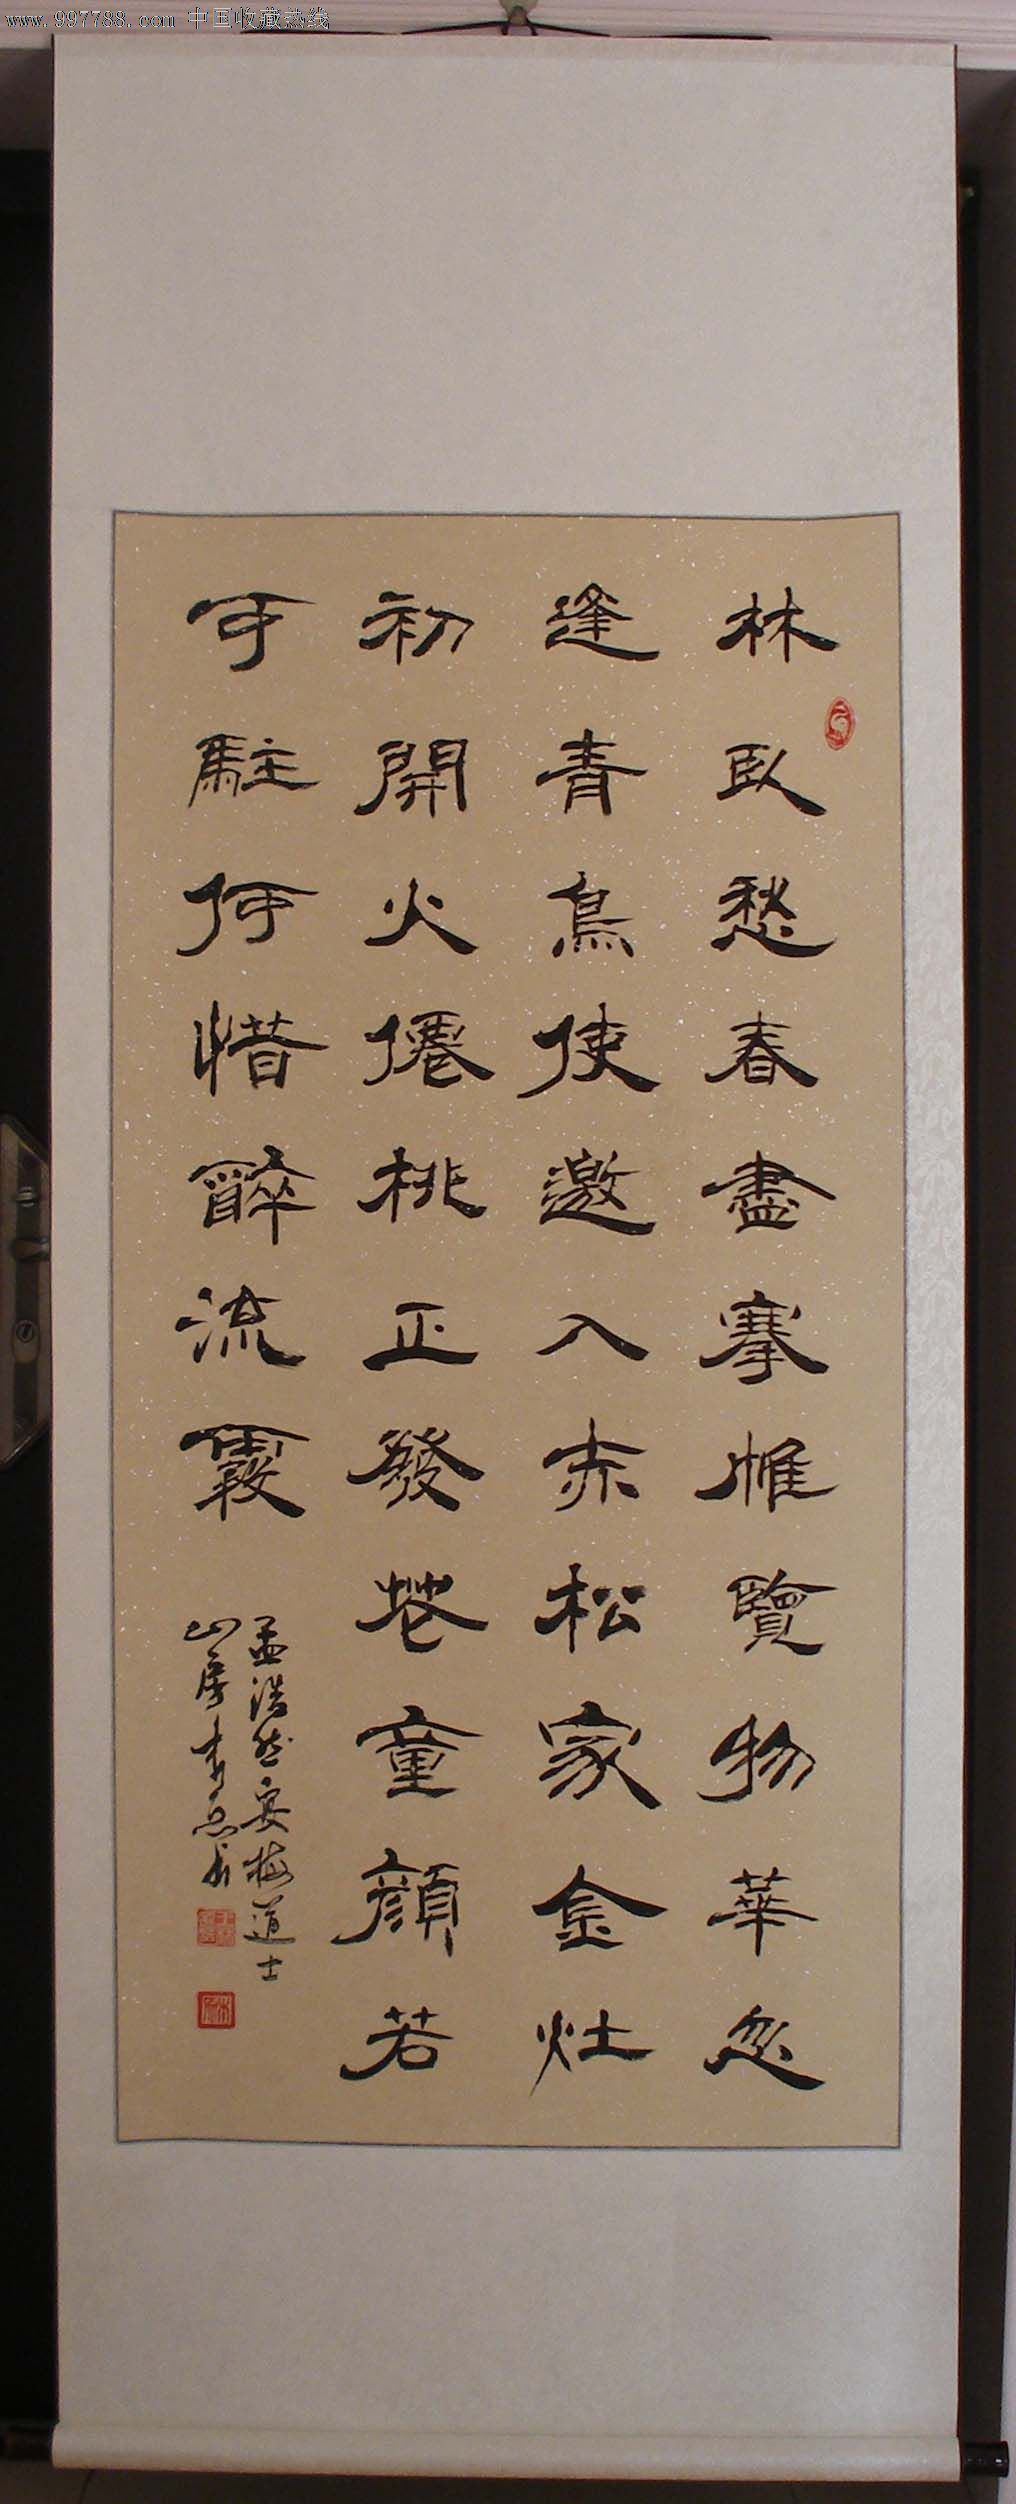 www.997788.com 中国收藏热线
林臥愁春盡搴帷覽物華忽
逢青鳥使邀入赤松家金灶
初開火僊桃正發花童顏若
可駐何惜醉流霞
孟浩然宴梅道士
山房